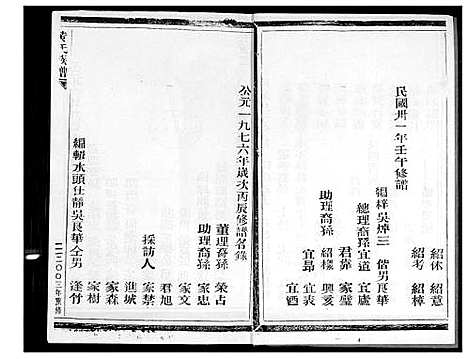 民國卅一年壬午修譜
紹休 紹意
紹考 紹樟
梓 吳焯三 偕男 良華
總理裔孫 宜道 宜廬
君 家璧
助理裔孫 紹樑 興亥
宜昂 宜表
宜酒
公元一九七六年歲次丙辰修譜名錄
董理裔孫 荣占
助理裔孫 家忠
家文
君旭
採訪人 家禁
進城
家森
家樹
編輯水頭仕靜吳良華仝男 逢竹
二〇〇三年重修
氏族譜